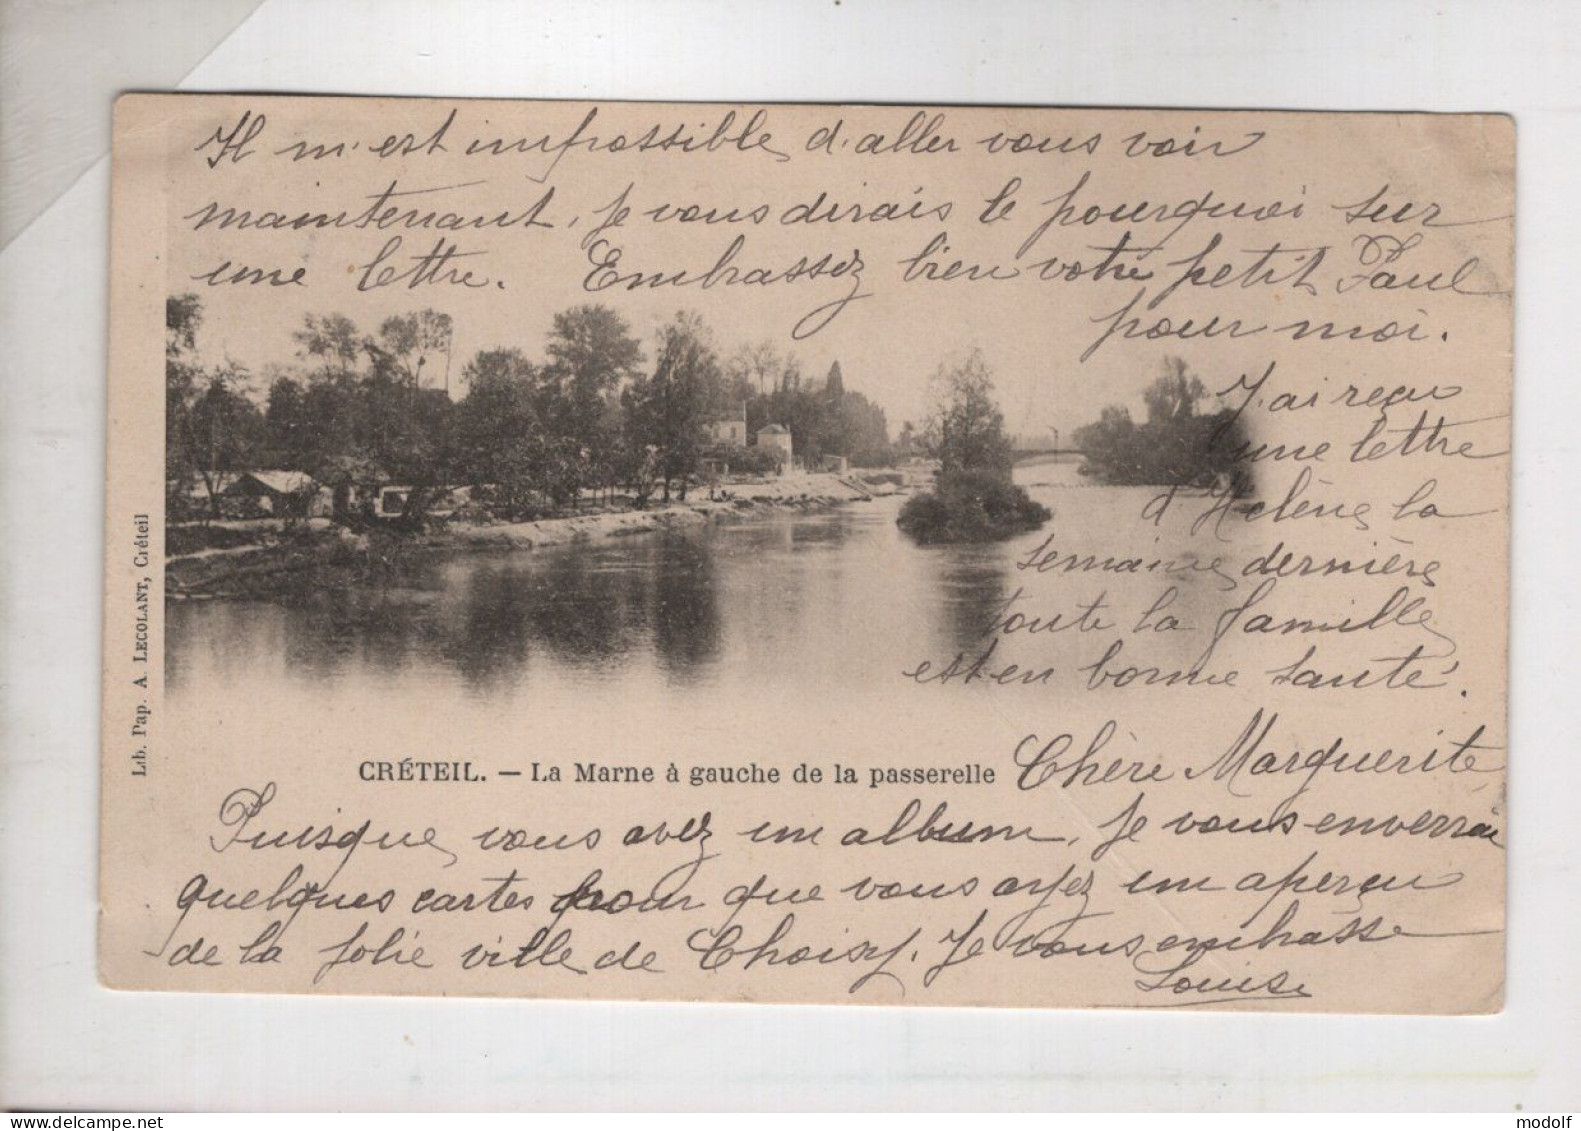 Il m'est impossible d'aller vous voir
maintenant, je vous dirais le pourquoi sur
une lettre. Embrassez bien votre petit Paul
pour moi.
J'ai reçu
une lettre
d'Helène la
semaine dernière
toute la famille
est en bonne santé.
Lib. Pap. A. LECOLANT, Créteil
CRÉTEIL. — La Marne à gauche de la passerelle
Chère Marguerite
Puisque vous avez un album, je vous enverrai
quelques cartes pour que vous ayez un aperçu
de la jolie ville de Choisy. Je vous embrasse
Louise
www.delcampe.net
modolf